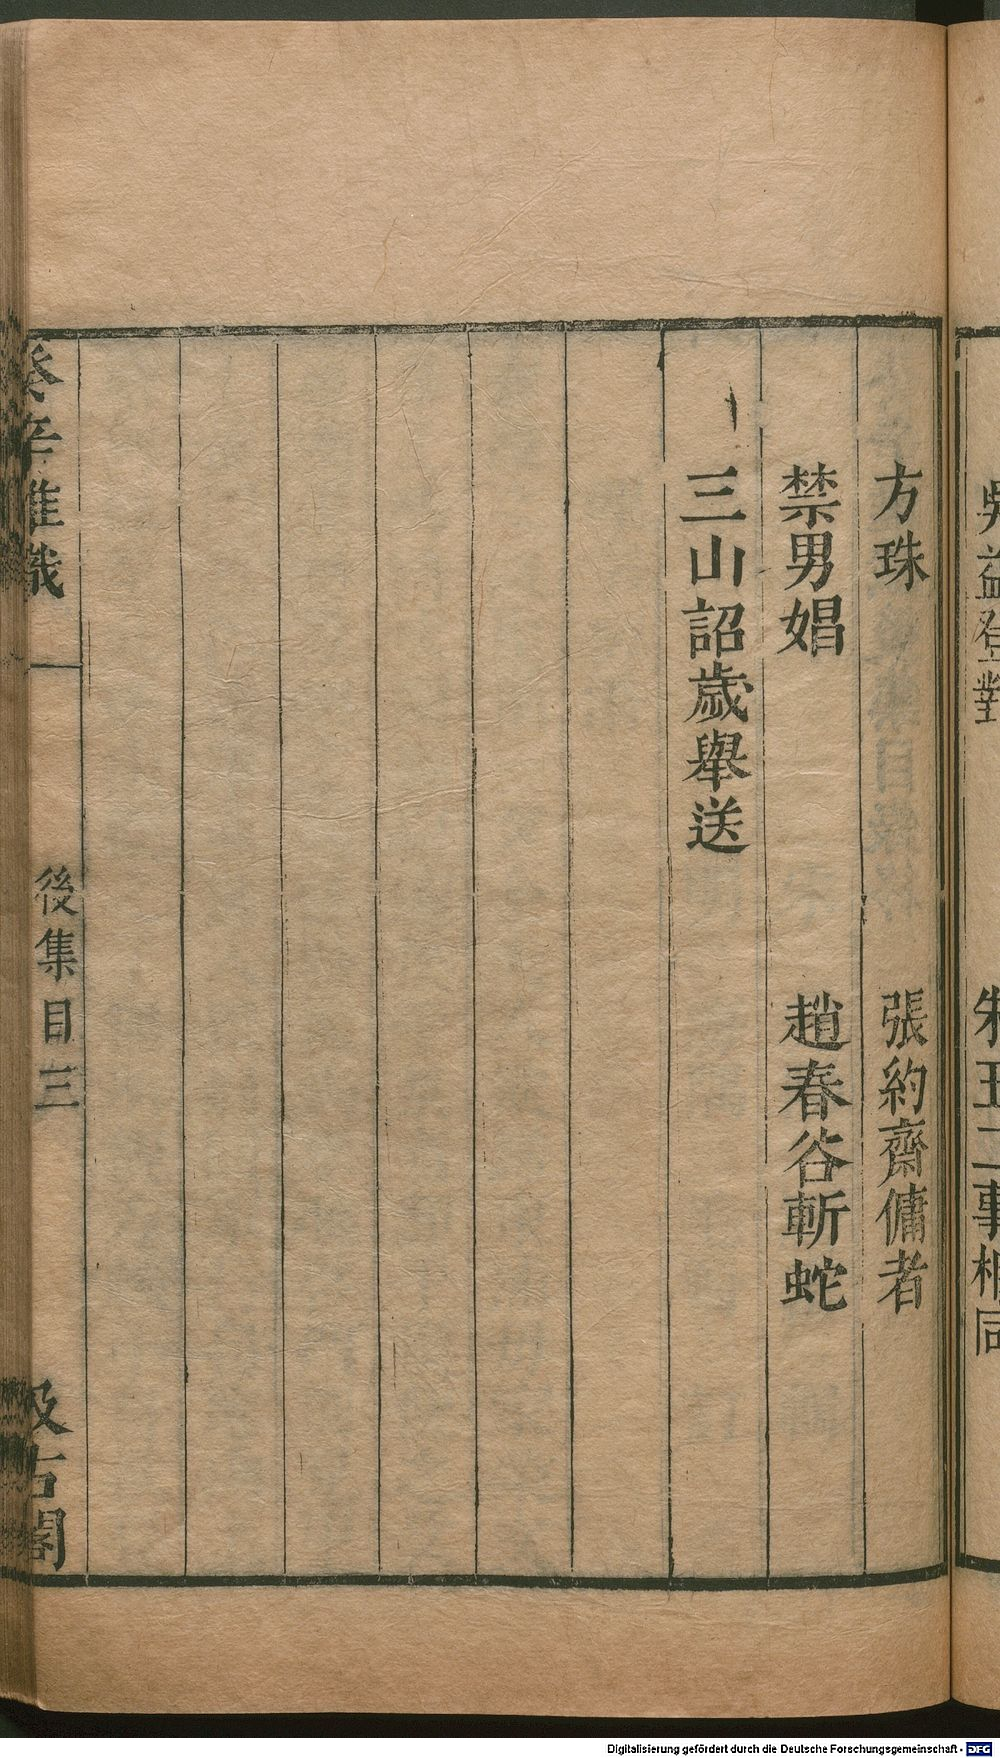 吳益登對
朱王二事相同
方珠
張約齋傭者
禁男娼
趙春谷斬蛇
三山詔歲舉送
癸辛雜識
後集目
三
汲古閣
Digitalisierung gefördert durch die Deutsche Forschungsgemeinschaft - DFG